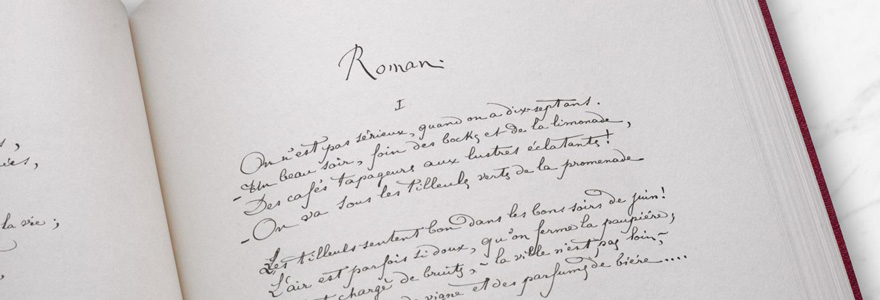 la vie ;
Roman.
I
On n'est pas sérieux, quand on a dix-sept ans.
- Un beau soir, foin des bocks et de la limonade,
Des cafés tapageurs aux lustres éclatants !
- On va sous les tilleuls verts de la promenade
Les tilleuls sentent bon dans les bons soirs de juin !
L'air est parfois si doux, qu'on ferme la paupière ;
chargé de bruits, - la ville n'est pas loin, -
vigne et des parfums de bière ....